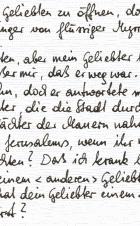 Geliebten zu öffnen, do
nger von flüssiger Myrr
ten, aber mein Geliebter
ßer mir, daß er weg war.
hn, doch er antwortete m
ter, die die Stadt durc
ächter der Mauern nah
Jerusalems, wenn ihr
chten? Daß ich krank b
einem <anderen> Geliebt
hat dein Geliebter einem
rst?